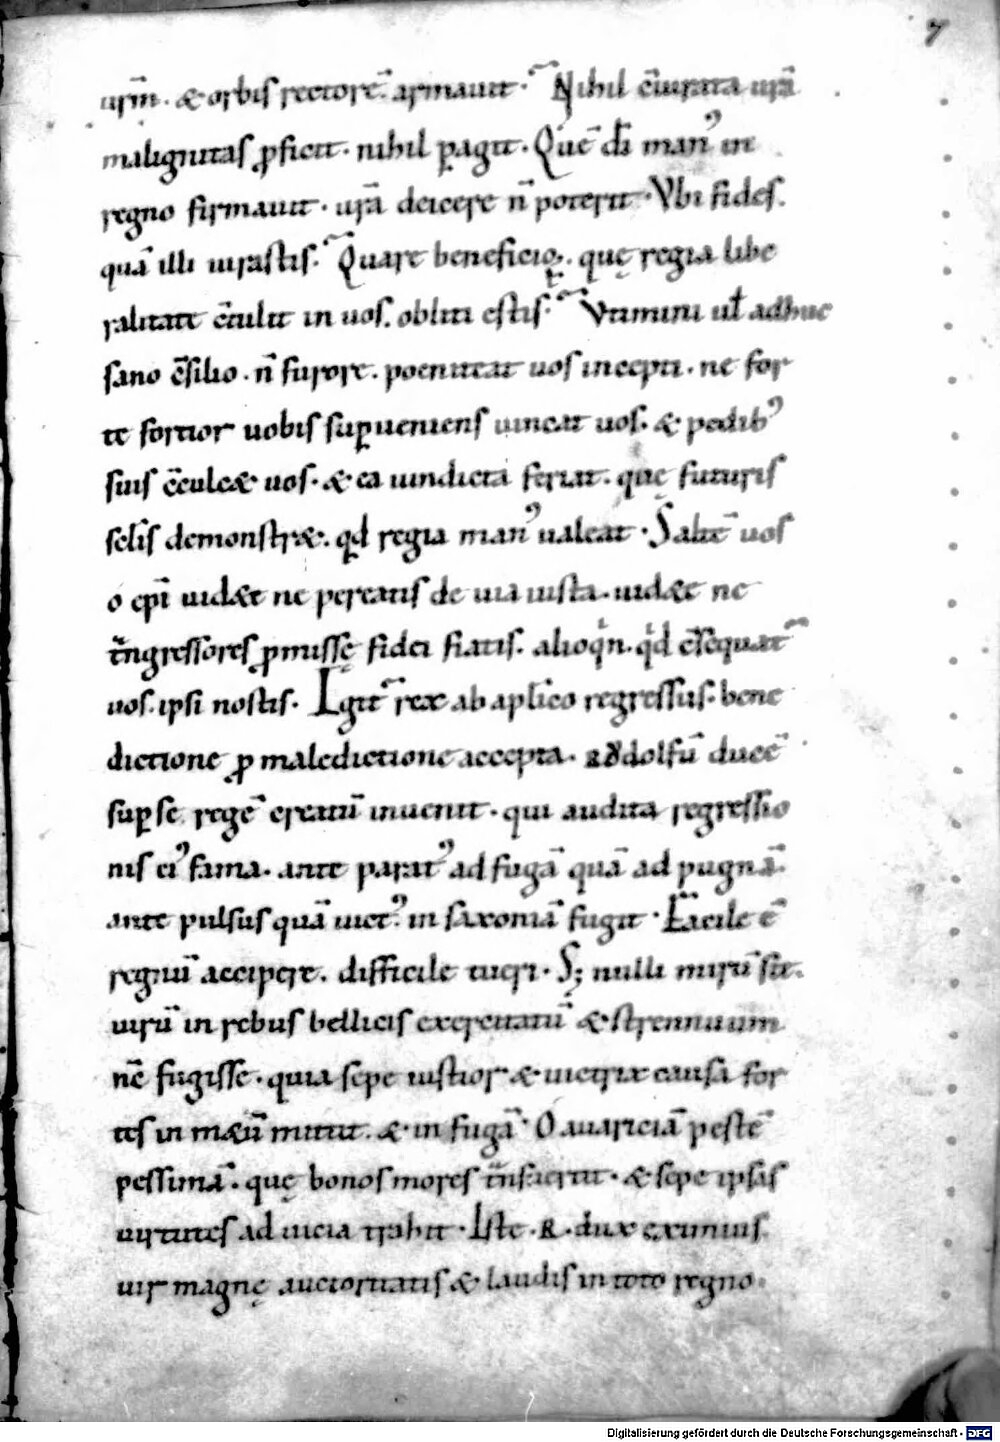 7
urm̄. & orbis rectorē. armauit. Nihil c̄iurata ur̄a
malignitas ꝓficit. nihil ꝑagit. Quē dī manꝰ in
regno firmauit. ur̄a deicere n̄ poterit. Vbi fides.
quā illi iurastis. Quare beneficioꝝ. quę regia libe
ralitate c̄tulit in uos. obliti estis. Vtimini ul̄ adhuc
sano c̄silio. n̄ furore. poeniteat uos incepti. ne for
te fortior uobis suꝑueniens uincat uos. & pedibꝰ
suis c̄culc& uos. & ea uindicta feriat. quę futuris
sclis demonstr&. qd̄ regia manꝰ ualeat. Saltē uos
o epī uid&e ne pereatis de uia iusta. uid&e ne
t̄ngressores ꝓmissę fidei fiatis. alioqn̄. qd̄ c̄sequat̄
uos. ipsi nostis. Igit̄ rex ab aplico regressus. bene
dictione ꝓ maledictione accepta. ruodolfū ducē
suꝑ se regē creatū inuenit. qui audita regressio
nis eiꝰ fama. ante paratꝰ ad fugā quā ad pugnā.
ante pulsus quā uictꝰ in saxoniā fugit. Facile ē
regnū accipere. difficile tueri. Sꝫ nulli mirū sit.
uirū in rebus bellicis exercitatū & strennuum
nc̄ fugisse. quia sepe iustior & uictrix causa for
tes in m&ū mittit. & in fugā. O auariciā pestē
pessimā. quę bonos mores t̄nsfertit. & sepe ipsas
uirtutes ad uicia trahit. Iste. R. dux eximius.
uir magnę auctoritatis & laudis in toto regno.
Digitalisierung gefördert durch die Deutsche Forschungsgemeinschaft - DFG